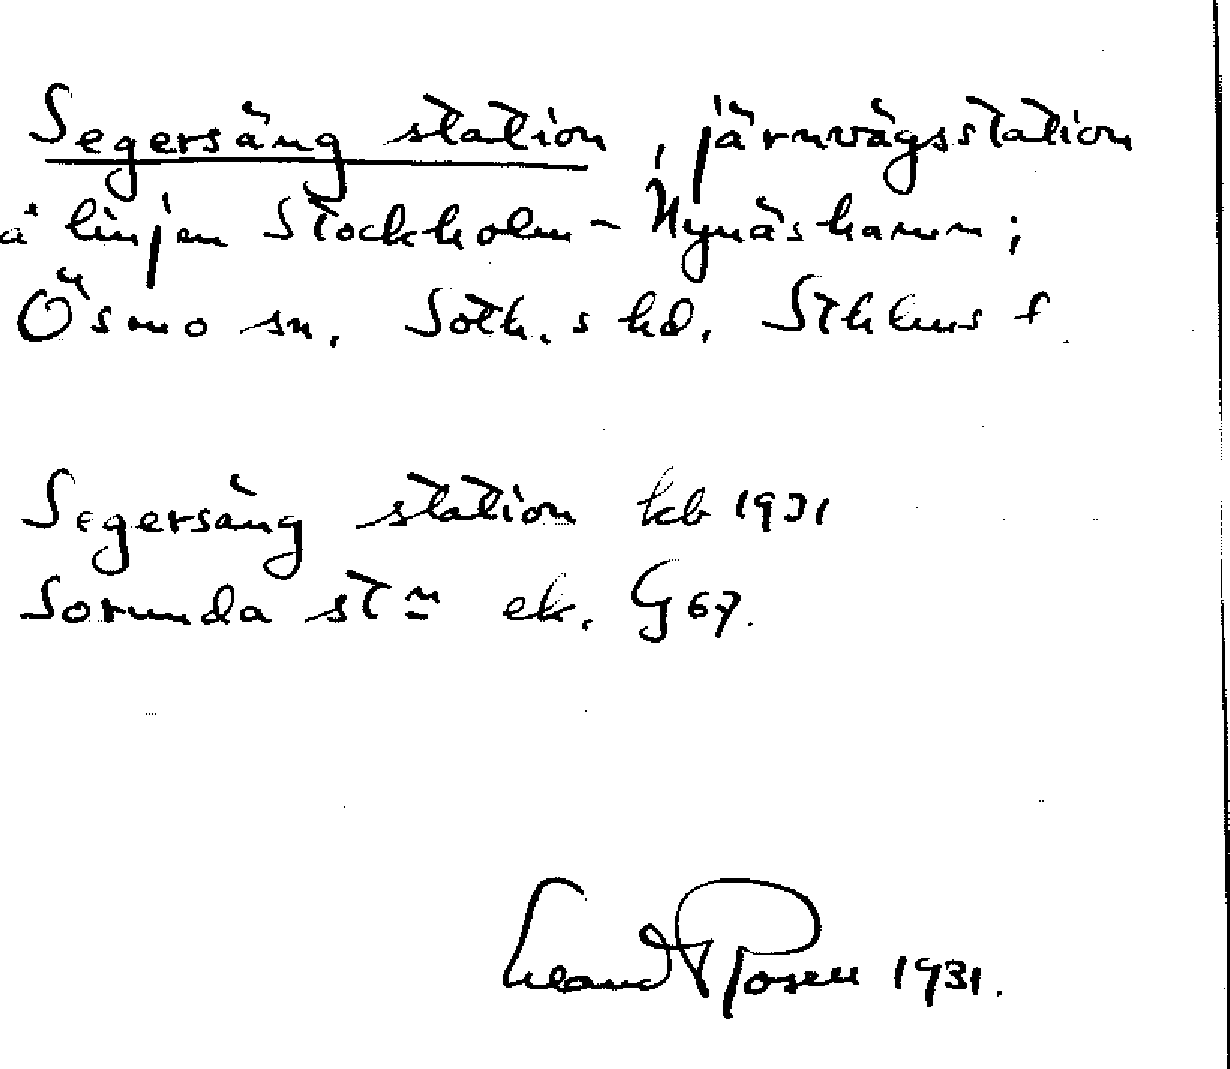 Segersäng station, järnvägsstation
å linjen Stockholm - Nynäshamn;
Ösmo sn. Soth.s hd. Sthlms f
Segersäng station kb 1931
Sorunda stn ek. G 67.
Rosell 1931.